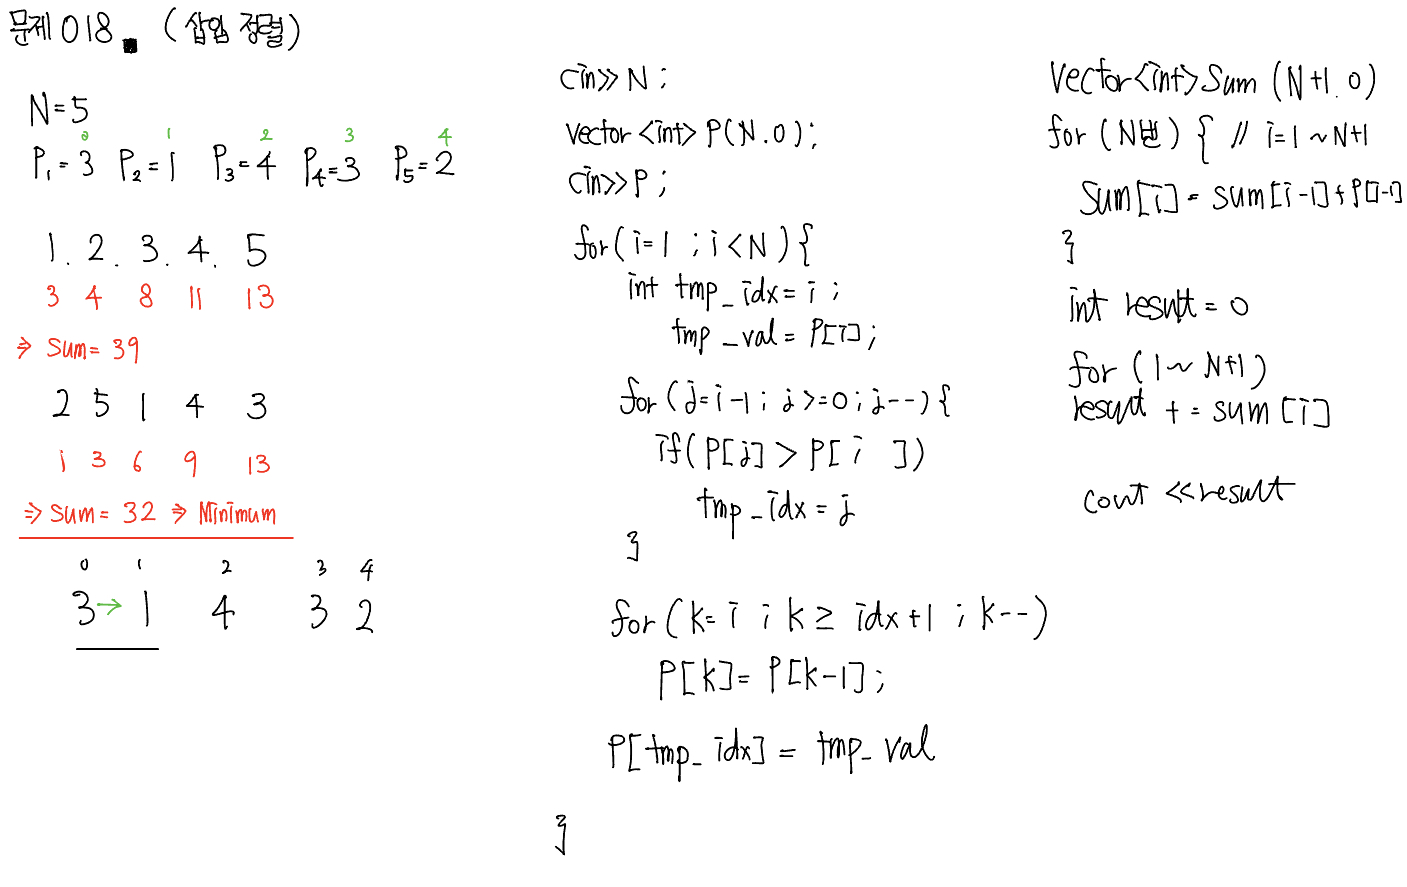 문제 018. (삽입 정렬)
N=5
0 1 2 3 4
P₁=3 P₂=1 P₃=4 P₄=3 P₅=2
1. 2. 3. 4. 5
3 4 8 11 13
⇒ Sum= 39
2 5 1 4 3
1 3 6 9 13
⇒ Sum= 32 ⇒ Minimum
0 1 2 3 4
3→1 4 3 2
cin>>N;
vector<int> P(N.0);
cin>>P;
for(i=1 ; i<N){
int tmp_idx=i;
tmp_val=P[i];
for(j=i-1; j>=0; j--){
if(P[j]>P[i ])
tmp_idx=j
}
for(k=i ; k≥ idx+1 ; k--)
P[k]=P[k-1];
P[tmp_idx] = tmp_val
}
Vector<int>Sum (N+1.0)
for (N번) { // i=1~N+1
Sum[i]=sum[i-1]+P[i-1]
}
int result=0
for (1~N+1)
result +=sum[i]
cout <<result